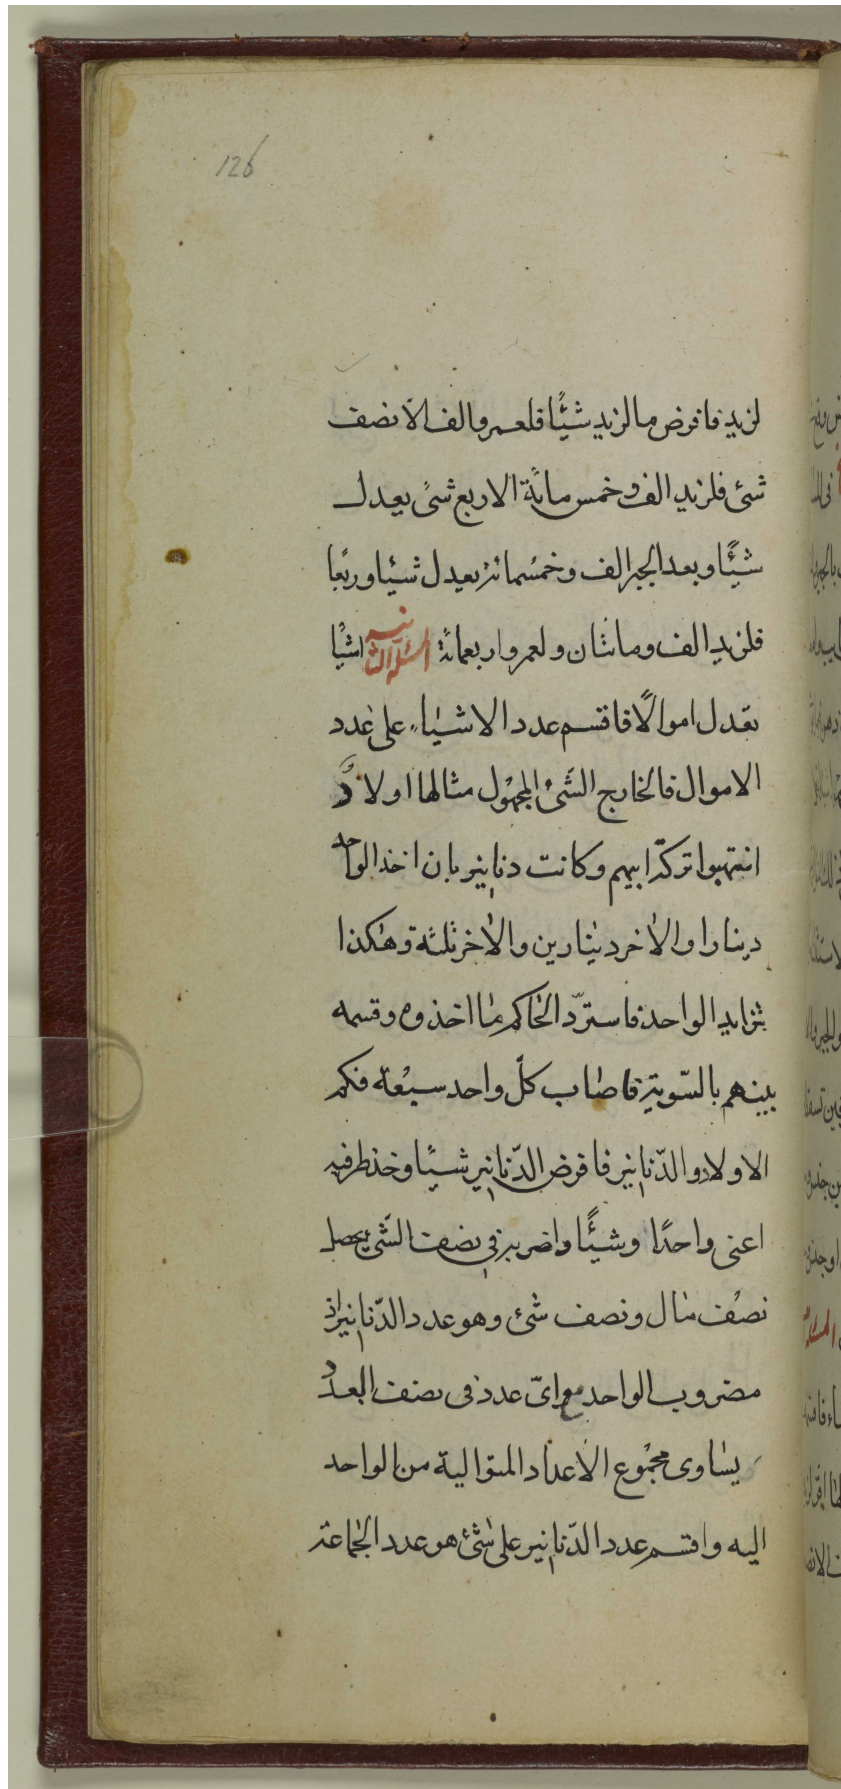 126
لزيد فافرض ما لزيد شيئًا فلعمرو الف الّا نصف
شئ فلزيد الف و خمس مائة الا ربع شئ يعدل
شيئًا و بعد الجبر الف و خمسمائة يعدل شيئا و ربعا
فلزيد الف و مائتان و لعمرو اربعمائة المسئلة الثانيه اشيا
تعدل اموالًا فاقسم عدد الاشياء على عدد
الاموال فالخارج الشئ المجهول مثالها اولاد
انتهبوا تركة ابيهم و كانت دنانير بان اخذ الواحد
دينارا و الاخر دينارين و الاخر ثلثة و هكذا
بتزايد الواحد فاستردّ الحاكم ما اخذوه و قسمه
بينهم بالسّوية فاصاب كلّ واحد سبعة فكم
الاولاد و الدّنانير فافرض الدّنانير شيئًا و خذ طرفيه
اعنى واحدًا و شيئًا و اضربه فى نصف الشئ يحصل
نصف مال و نصف شئ و هو عدد الدّنانير اذ
مضروب الواحد مع اىّ عدد فى نصف العدد
يساوى مجموع الاعداد المتوالية من الواحد
اليه و اقسم عدد الدّنانير على شئ هو عدد الجماعة